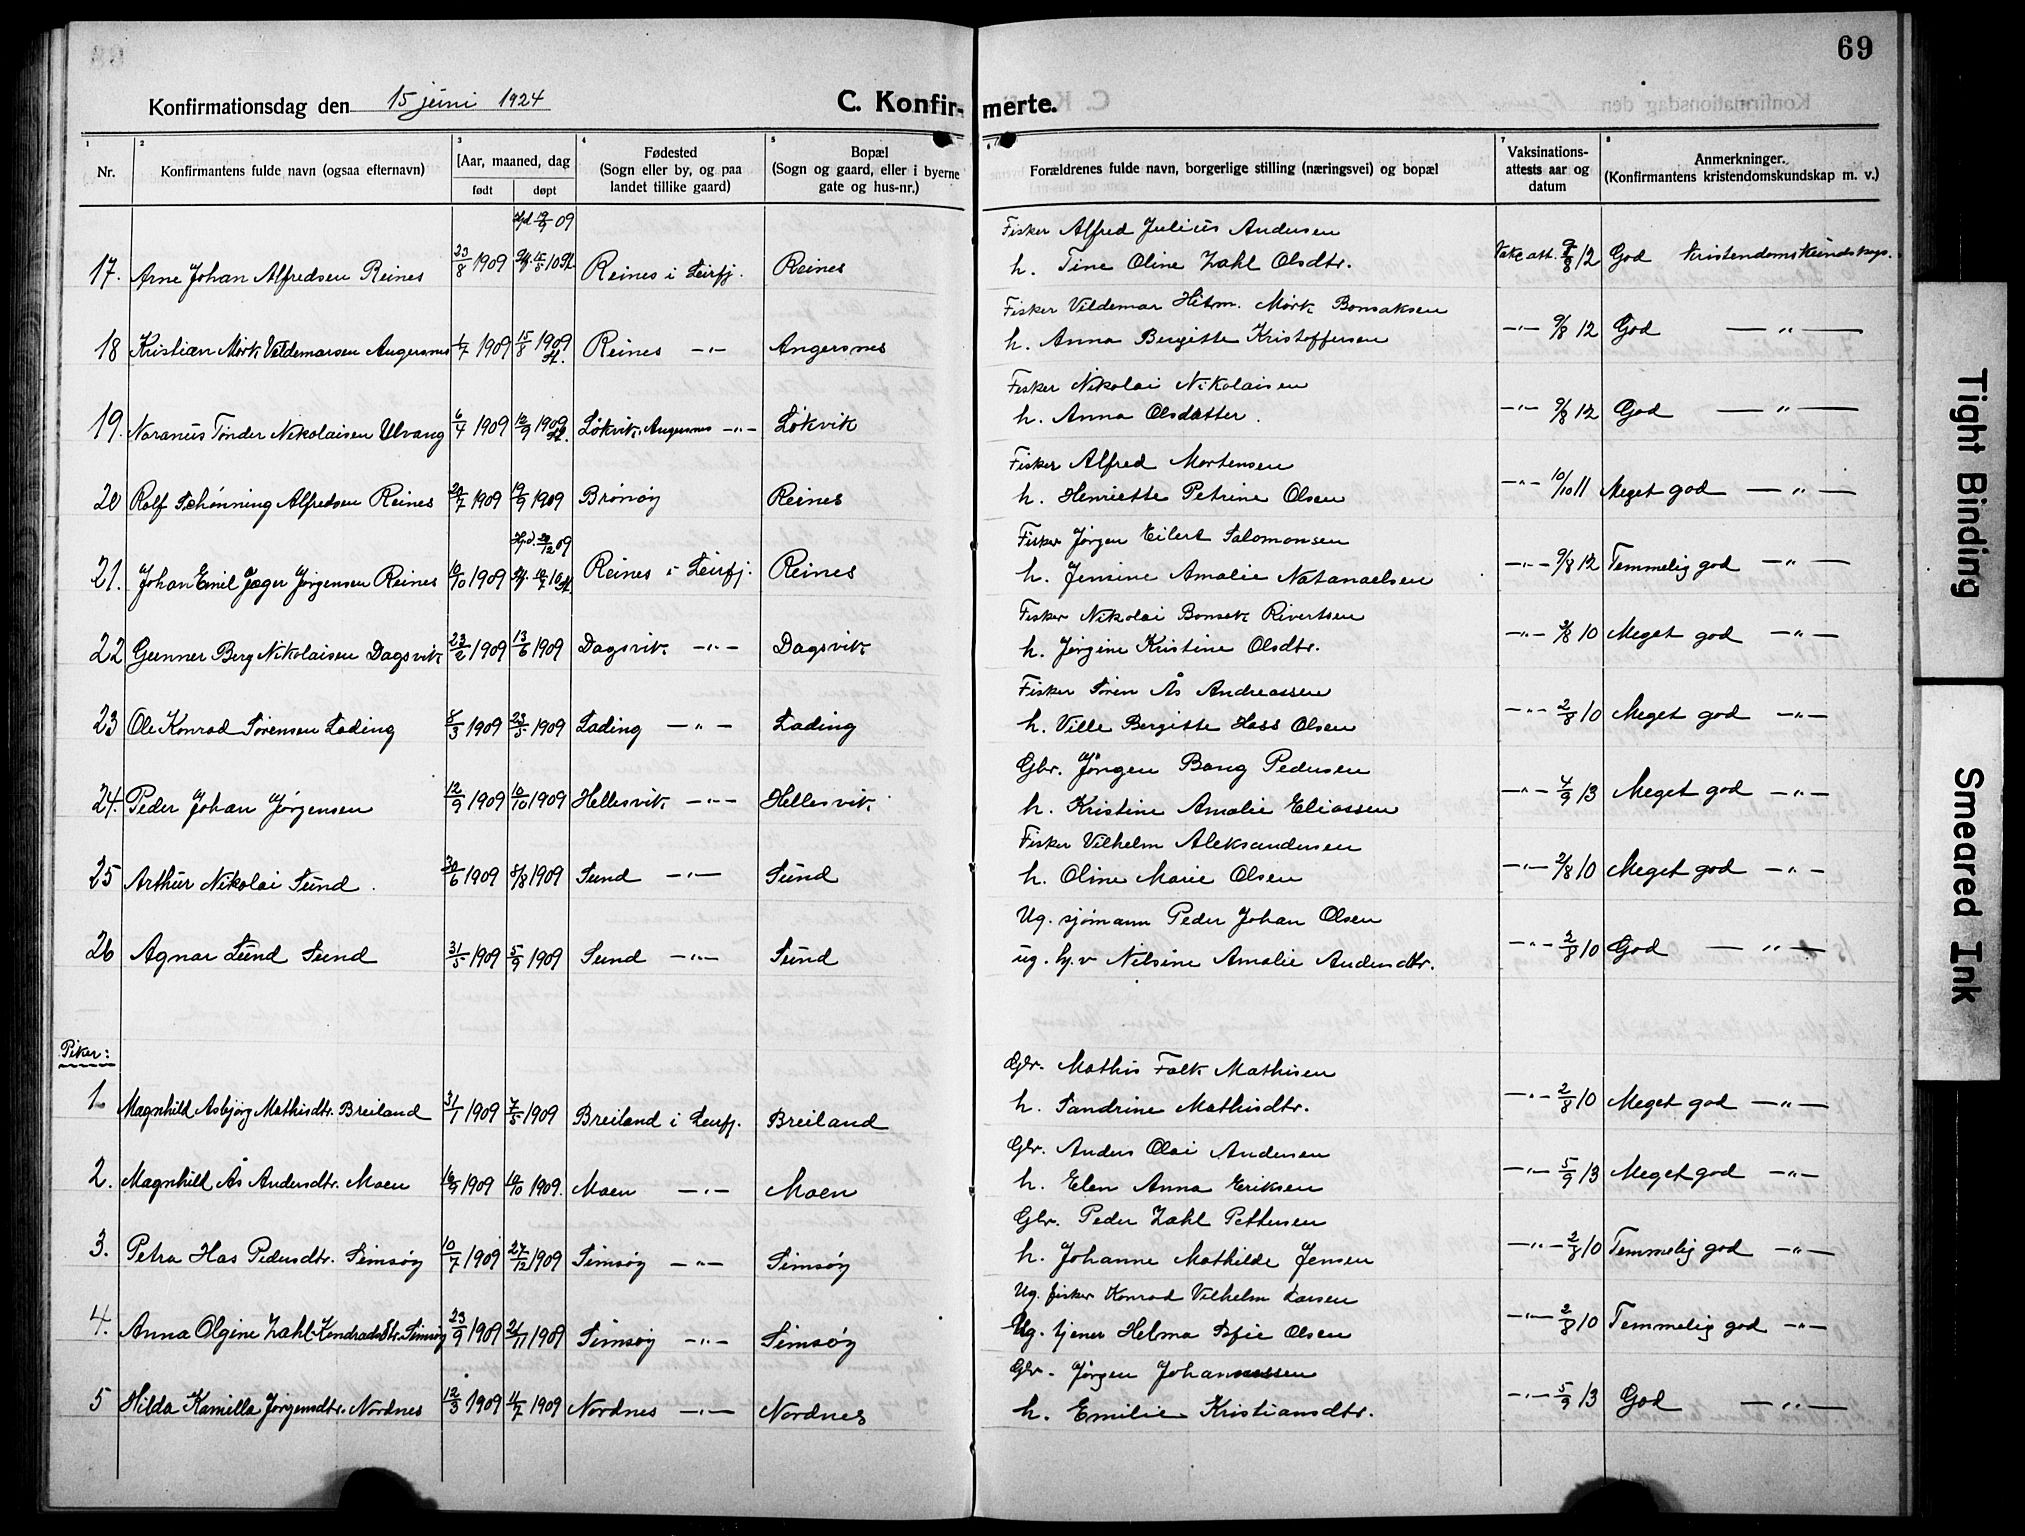 69
Konfirmationsdag den 15 juni 1924
C. Konfirmerte.
1 2 3 4 5 7 8
Nr.
Konfirmantens fulde navn (ogsaa efternavn)
Aar, maaned, dag
født døpt
Fødested
(Sogn eller by, og paa
landet tillike gaard)
Bopæl
(Sogn og gaard, eller i byerne
gate og hus-nr.)
Forældrenes fulde navn, borgerlige stilling (næringsvei) og bopæl
Vaksinations-
attests aar og
datum
Anmerkninger.
(Konfirmantens kristendomskundskap m. v.)
Fisker Alfred Julius Andersen
17. Arne Johan Alfredsen Reines 23/8 1909 Reines i Leirfj. Reines h. Tine Oline Zahl Olsdtr. Vakc.att. 9/8 12 God Kristendomskundskap.
Fisker Vildemar Hilm. Mørk Bonsaksen
18 Kristian Mørk Valdemarsen Angersnes 1/7 1909 15/8 1909 Reines -"- Angersnes h. Anna Bergitte Kristoffersen -"- 9/8 12 God -"-
Fisker Nikolai Nikolaisen
19. Naranus Tønder Nikolaisen Ulvang 6/4 1909 12/9 1909 Løkvik, Angersnes -"- Løkvik h. Anna Olsdatter. -"- 9/8 12 God -"-
Fisker Alfred Mortensen
20 Rolf Schønning Alfredsen Reines 24/7 1909 19/9 1909 Brønøy Reines h. Henriette Petrine Olsen -"- 10/10 11 Meget god -"-
Fisker Jørgen Eilert Salomonsen
21. Johan Emil Jæger Jørgensen Reines 10/10 1909 Reines i Leirfj. Reines h. Jensine Amalie Natanaelsen -"- 9/8 12 Temmelig god -"-
Fisker Nikolai Bonsak Rivertsen
22 Gunner Berg Nikolaisen Dagsvik 23/2 1909 13/6 1909 Dagsvik -"- Dagsvik h. Jørgine Kristine Olsdtr. -"- 3/8 10 Meget god -"-
Fisker Søren Ås Andreassen
23 Ole Konrad Sørensen Lading 8/3 1909 23/5 1909 Lading -"- Lading h. Ville Bergitte Hass Olsen -"- 2/8 10 Meget god -"-
Gbr. Jørgen Bang Pedersen
24. Peder Johan Jørgensen 12/9 1909 10/10 1909 Hellesvik -"- Hellesvik h. Kristine Amalie Eliassen -"- 4/9 13 Meget god -"-
Fisker Vilhelm Aleksandersen
25 Arthur Nikolai Sund. 30/6 1909 8/8 1909 Sund -"- Sund h. Oline Marie Olsen -"- 2/8 10 Meget god -"-
Ug. sjømann Peder Johan Olsen
26 Agnar Lund Sund 31/5 1909 5/9 1909 Sund -"- Sund ug. hj.v Nilsine Amalie Andersdtr. -"- 2/8 10 God -"-
Piker:
Gbr. Mathis Falk Mathisen
1. Magnhild Asbjørg Mathisdtr. Breiland 31/1 1909 7/5 1909 Breiland i Leirfj. Breiland h. Sandrine Mathisdtr. -"- 2/8 10 Meget god -"-
Gbr. Anders Olai Andersen
2. Magnhild Ås Andersdtr. Moen 16/9 1909 10/10 1909. Moen -"- Moen h. Elen Anna Eriksen -"- 5/9 13 Meget god -"-
Gbr. Peder Zahl Pettersen
3. Petra Has Pedersdtr. Simsøy 10/7 1909 27/12 1909 Simsøy -"- Simsøy h. Johanne Mathilde Jensen -"- 2/8 10 Temmelig god -"-
Ug. fisker Konrad Vilhelm Larsen
4. Anna Olgine Zahl Kondradsdtr. Simsøy 23/9 1909 21/11 1909 Simsøy -"- Simsøy Ug. tjener Helma Sofie Olsen -"- 2/8 10 Temmelig god -"-
Gbr. Jørgen Johannessen
5 Hilda Kamilla Jørgensdtr. Nordnes 12/3 1909 4/7 1909 Nordnes -"- Nordnes h. Emilie Kristiansdtr. -"- 5/9 13 God -"-
Tight Binding
Smeared Ink